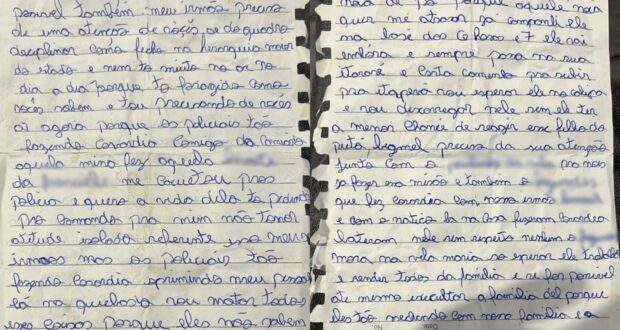 possivel também meu irmos preciso
de uma atencas de voçês ae do quadro
deciplinar como fecha na hierarquia maior
do estado e nem to muito na or no
dia a dia porque to foragido como
vocês sabem e tou precisando de voçes
ai agora porque os policiais tão
fazendo covardia comigo da comando
aquela mina fez aquela
da me caguetou pros
policia e quero a vida dela to pedindo
pro comando pra mim não tomar
atitude isolada referente isso meus
irmaos mas os policiais tão
fazendo covardia oprimindo meu pessoal
lá na quebrada vou matar todos
esses coisas porque eles não sabem
não de pg porque aquele não
quer me atrasar já companhei ele
na base dos
embora e sempre para na sua
Itararé e corta caminho pra subir
pra itapera vou esperar ele na
e vou descarregar nele sem ele ter
a menor chance de reagir esse filho da
puta, precisa da sua atenção
junto com o pra nois
so fazer essa missão e também o
que fez covardia com nosso irmos
e com a noticia la na casa fizeram covardia
bateram nele sem respeito nenhum o
mora na vila maria so esperar ele trabalha
e render todos da familia e si for possivel
até mesmo executar a familia del porque
eles tão mexendo com nossa familia e a